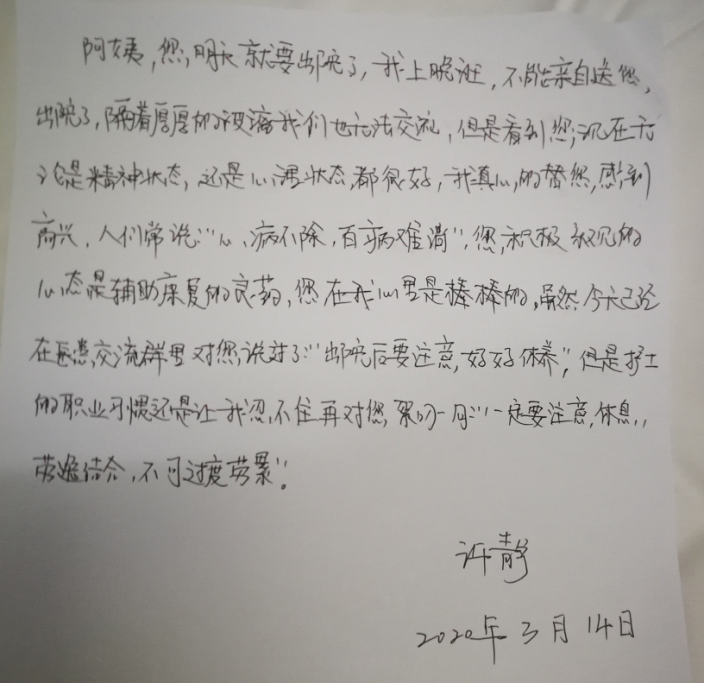 阿姨,您明天就要出院了,我上晚班,不能亲自送您
出院了,隔着厚厚的玻璃我们也无法交流,但是看到您现在无
论是精神状态,还是心理状态,都很好,我真心的替您感到
高兴,人们常说:“心病不除,百病难消”,您积极乐观的
心态是辅助康复的良药,您在我心里是棒棒的,虽然今天已经
在医患交流群里对您说过了:“出院后要注意,好好休养”,但是护士
的职业习惯还是让我忍不住再对您叨一句:“一定要注意休息,
劳逸结合,不可过度劳累”。
许静
2020年3月14日